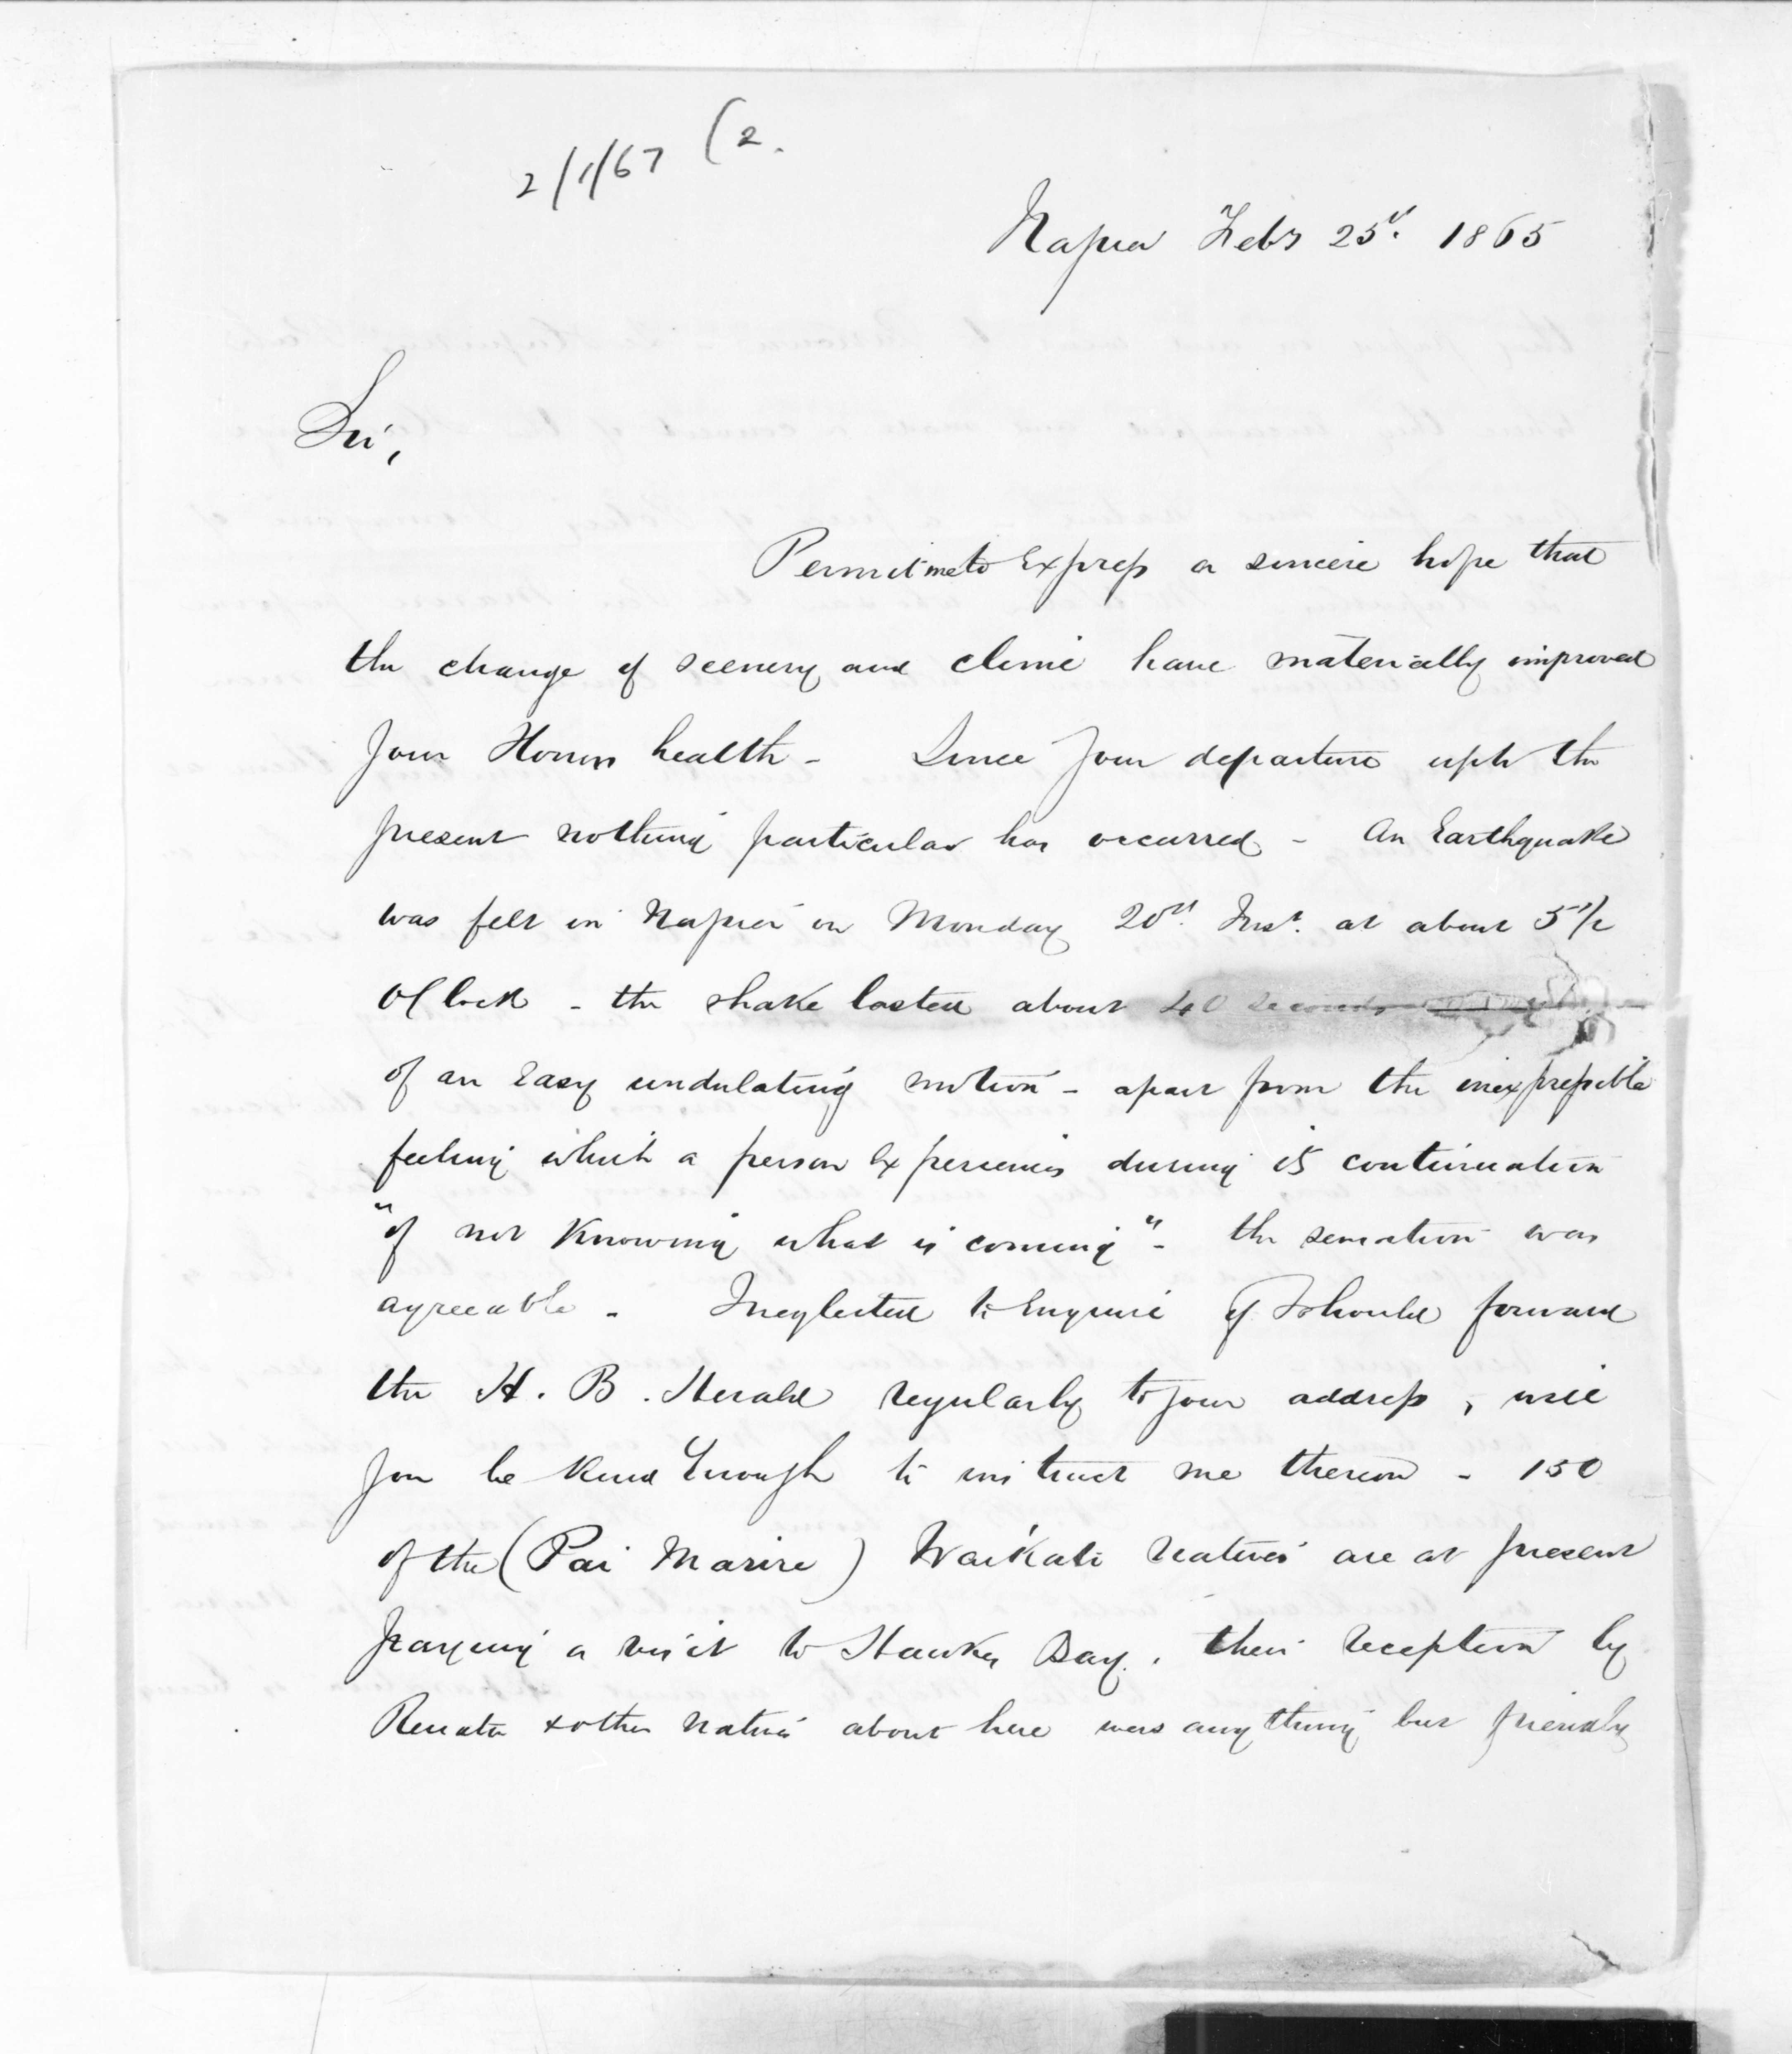 2/1/67 (2.
Napier Feby 25th. 1865
Sir,
Permit me to Express a sincere hope that
the change of scenery and clime have materially improved
Your Honors health - Since Your departure upto the
present nothing particular has occurred - An Earthquake
was felt in Napier on Monday 20th. Inst. at about 5 1/2
OClock - the shake lasted about 40 seconds
of an Easy undulating motion - apart from the inexpressible
feeling which a person Experiences during its continuation
"of not Knowing what is coming" - the sensation was
agreeable - I neglected to Enquire if I should forward
the H. B. Herald regularly to your address, will
you be Kind Enough to instruct me thereon - 150
of the (Pai Marire) Waikato Natives are at present
paying a visit to Hawkes Bay. their reception by
Renata & other natives about here was any thing but friendly